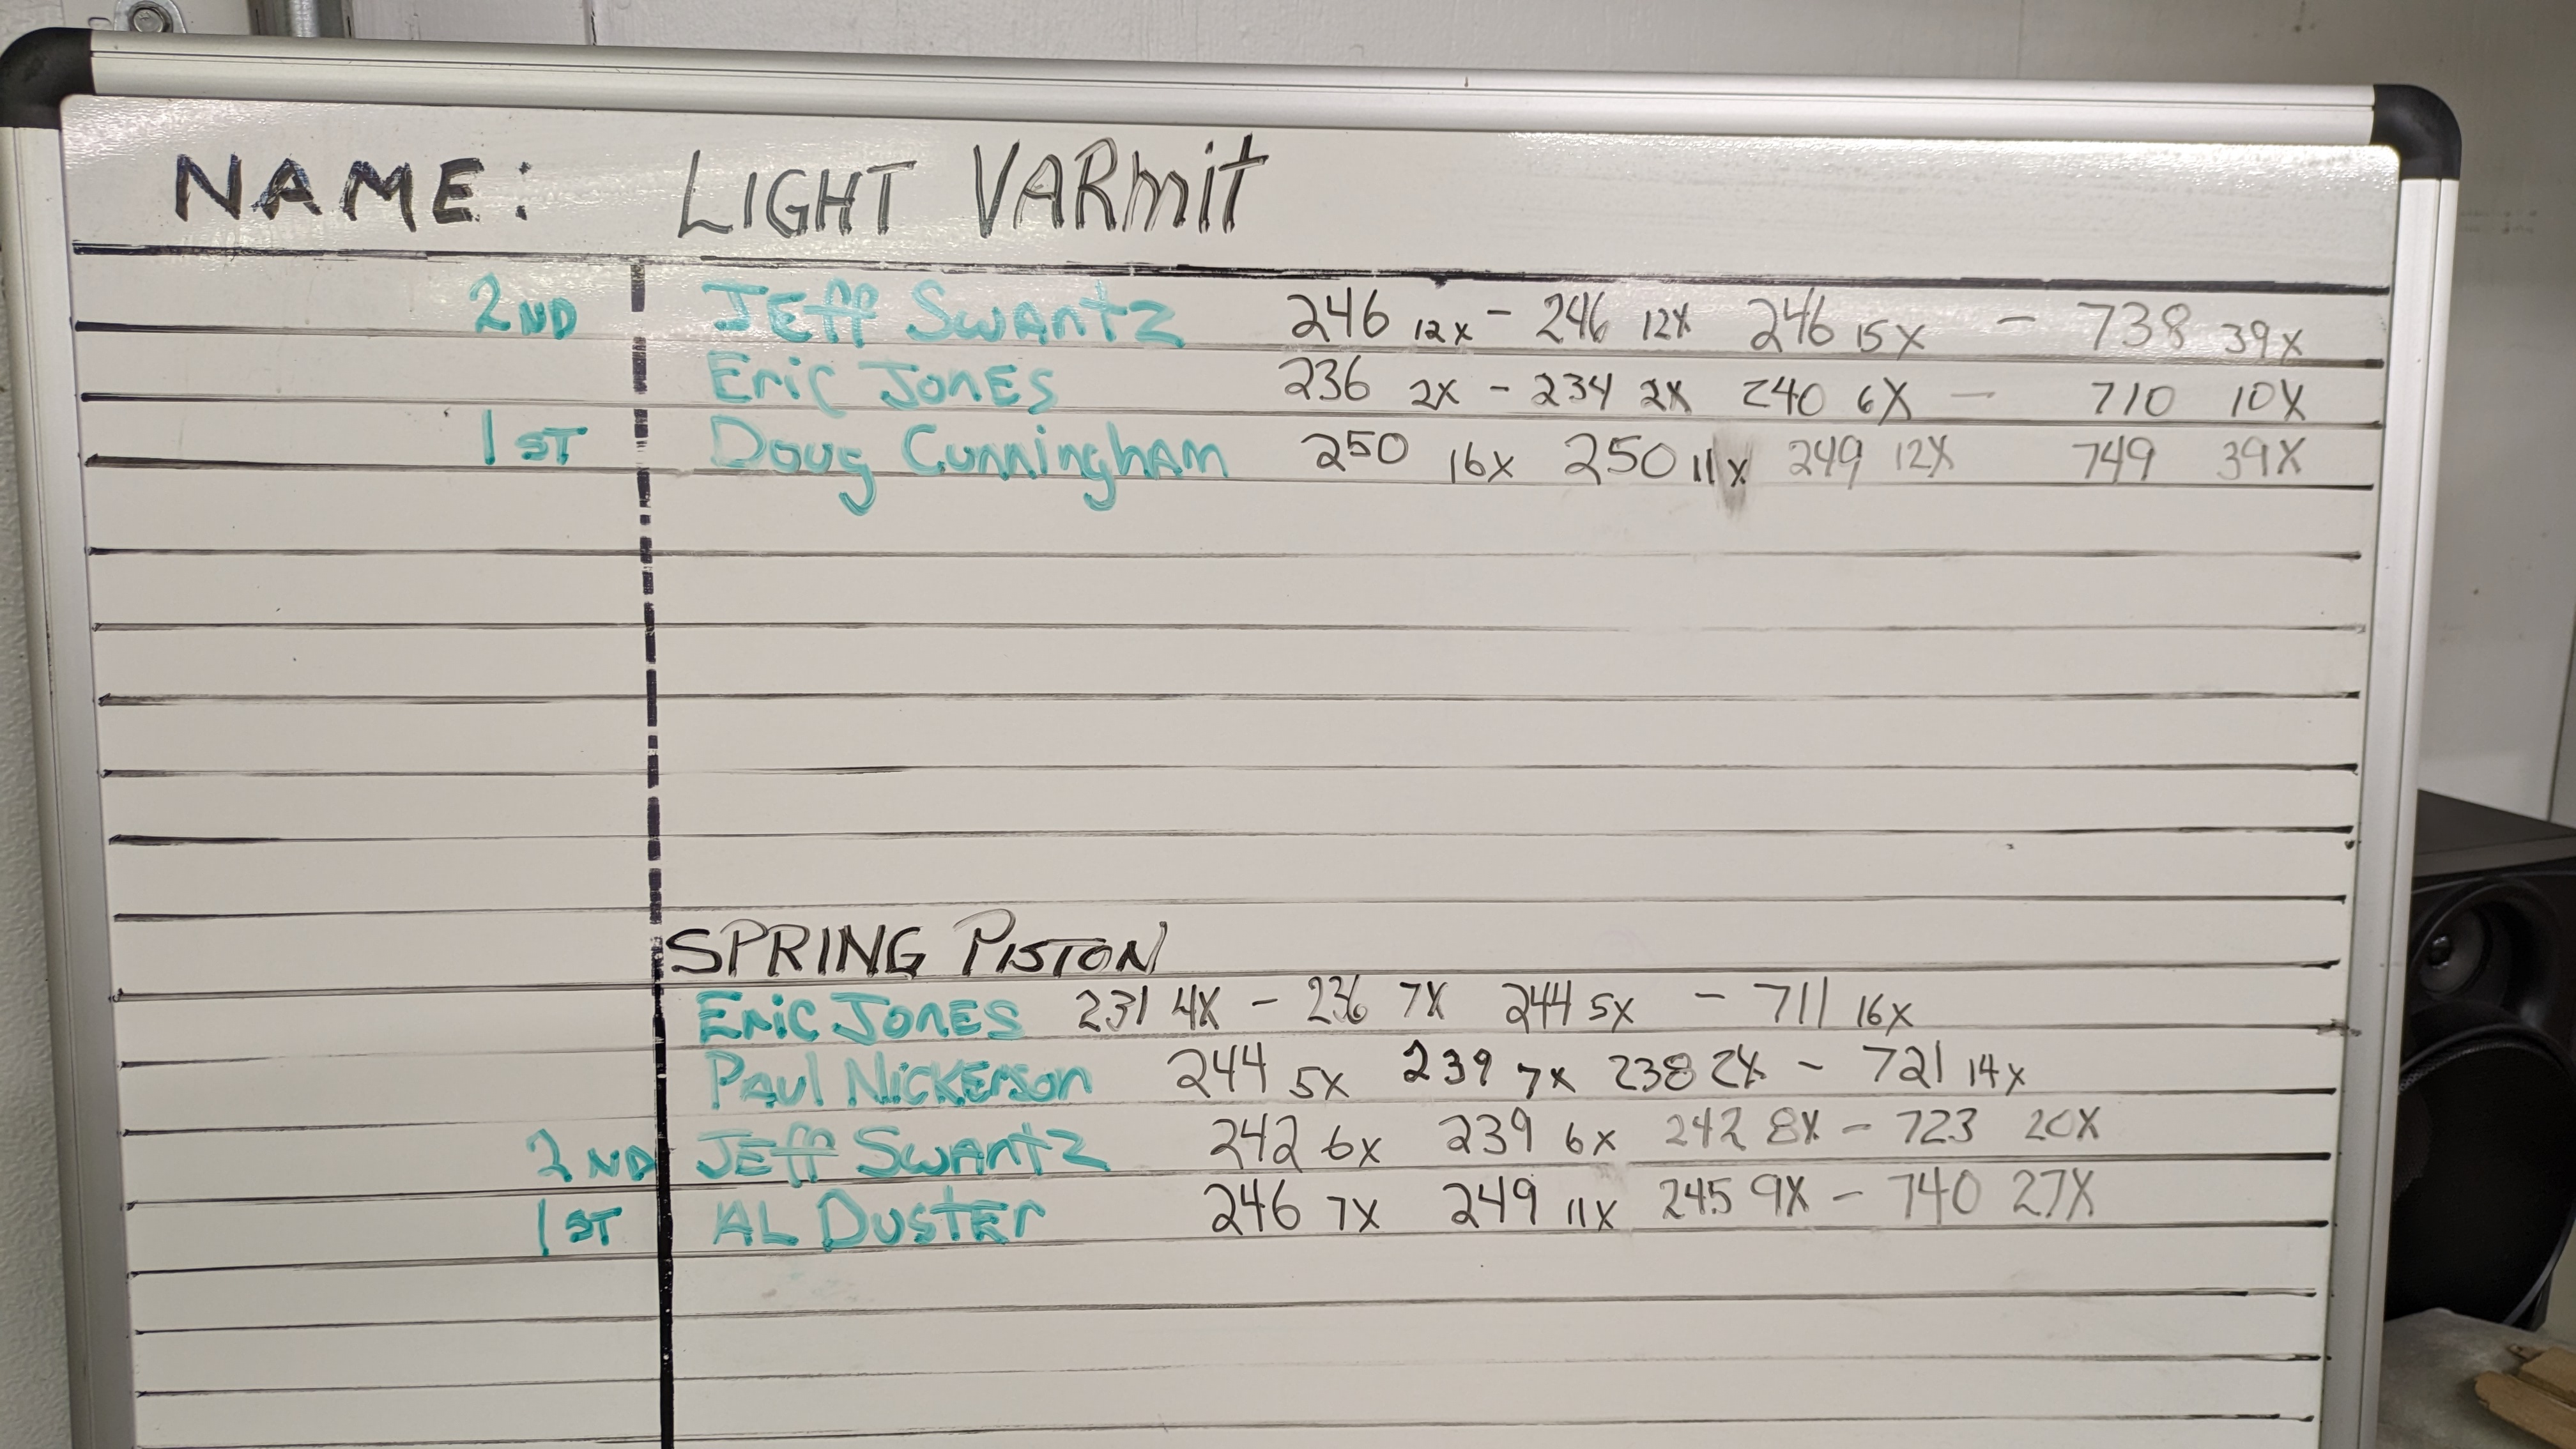 NAME: LIGHT VARmiT
2ND JEff SWAntz 246 12X - 246 12X 246 15X - 738 39X
Eric JonES 236 2X - 234 2X 240 6X - 710 10X
1ST Doug Cunningham 250 16X 250 11X 249 12X 749 39X
SPRING PISTON
Eric JonES 231 4X - 236 7X 244 5X - 711 16X
PAul NICKErson 244 5X 239 7X 238 2X - 721 14X
2ND JEff SWAntz 242 6X 239 6X 242 8X - 723 20X
1ST AL DustEr 246 7X 249 11X 245 9X - 740 27X